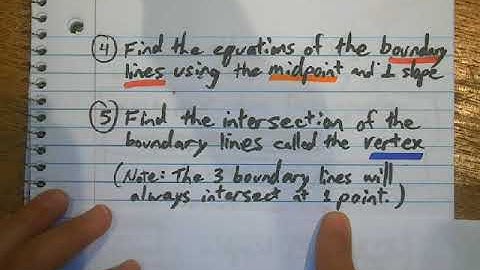 ④ Find the equations of the boundary
lines using the midpoint and ⊥ slope
⑤ Find the intersection of the
boundary lines called the vertex
(Note: The 3 boundary lines will
always intersect at 1 point.)